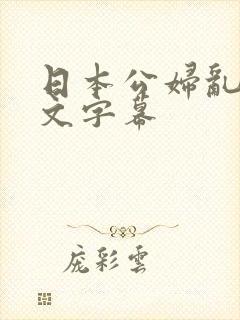 日本公婦亂
文字幕
庞彩雲